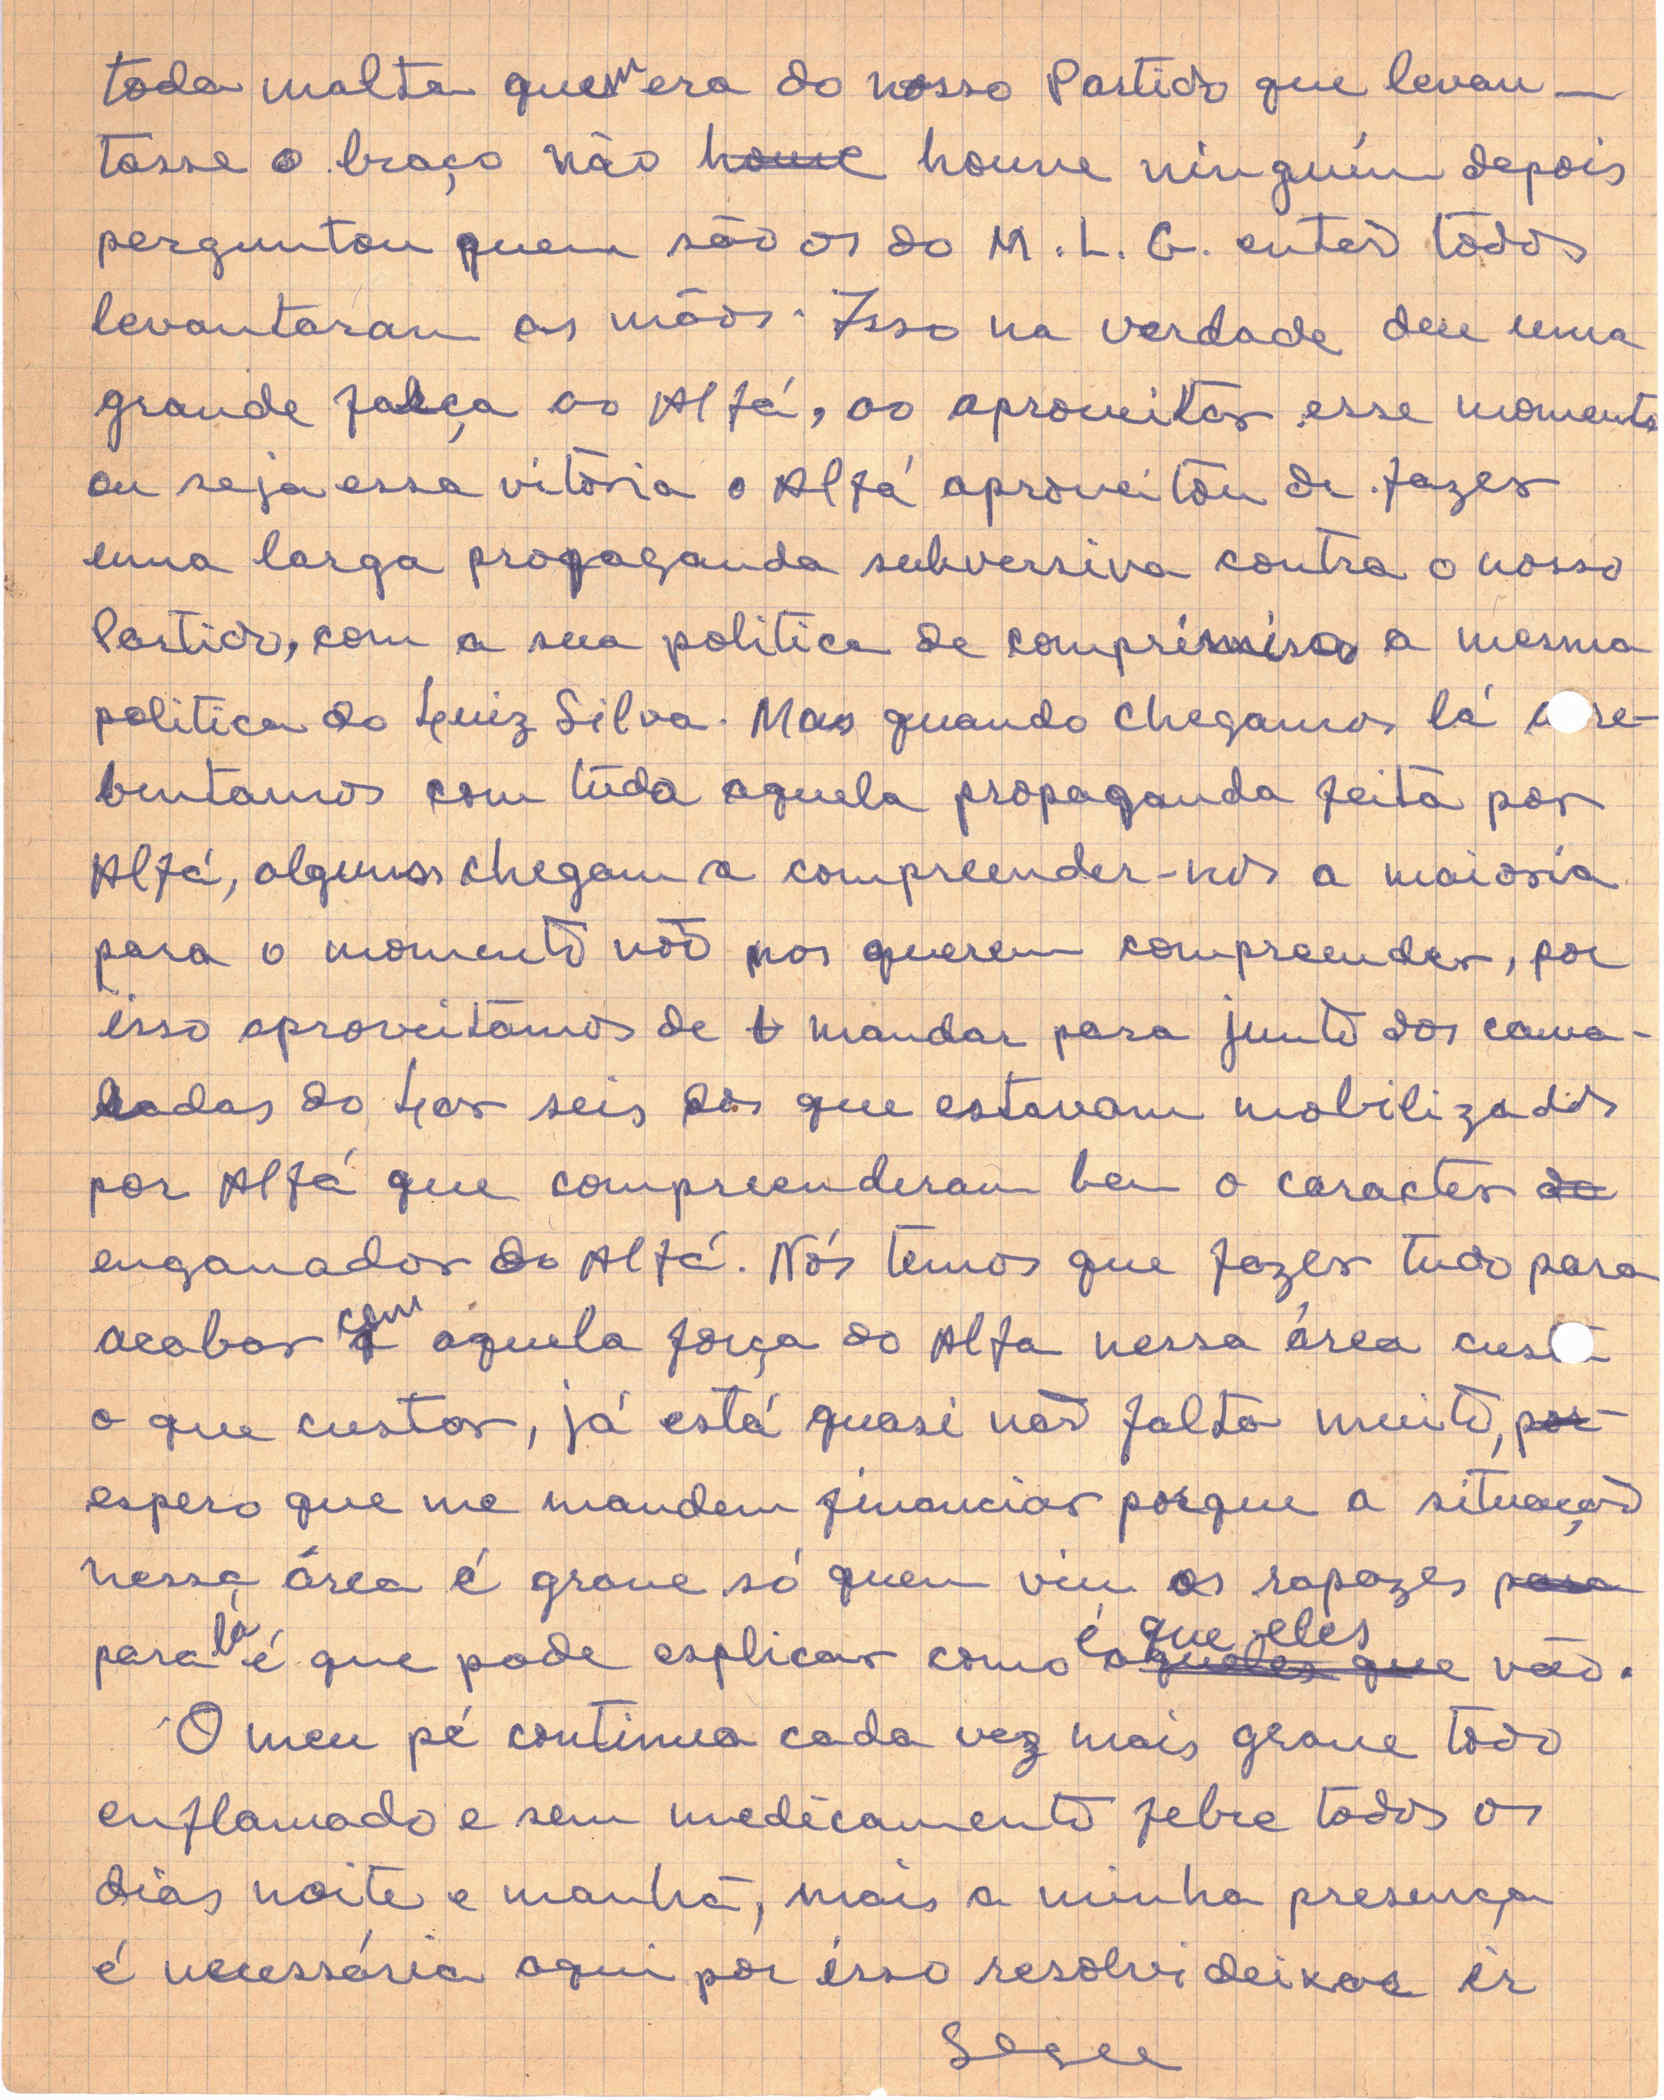 toda malta quem era do nosso Partido que levan-
tasse o braço não home houve ninguém depois
perguntou quem são os do M.L.G. então todos
levantaram as mãos. Isso na verdade deu uma
grande força ao Alfá, ao aproveitar esse momento
ou seja essa vitória o Alfá aproveitou de fazer
uma larga propaganda subversiva contra o nosso
Partido, com a sua politica de a mesma
politica do Luiz Silva. Mas quando chegamos lá arre-
bentamos com tuda aquela propaganda feita por
Alfá, alguns chegam a compreender-nos a maioria
para o momento não nos querem compreender, por
isso aproveitamos de mandar para junto dos cama-
radas do Lar seis dos que estavam mobilizados
por Alfá que compreenderam bem o caracter do
enganador do Alfá. Nós temos que fazer tudo para
acabar com aquela força do Alfa nessa área custa
o que custar, já está quasi não falta muito, por
espero que me mandem financiar porque a situação
nessa área é grave só quem viu os rapazes para
para lá é que pode esplicar como é aqueles que que eles vão.
O meu pé continua cada vez mais grave todo
enflamado e sem medicamento febre todos os
dias noite e manhã, mais a minha presença
é necessária aqui por isso resolvi deixar ir